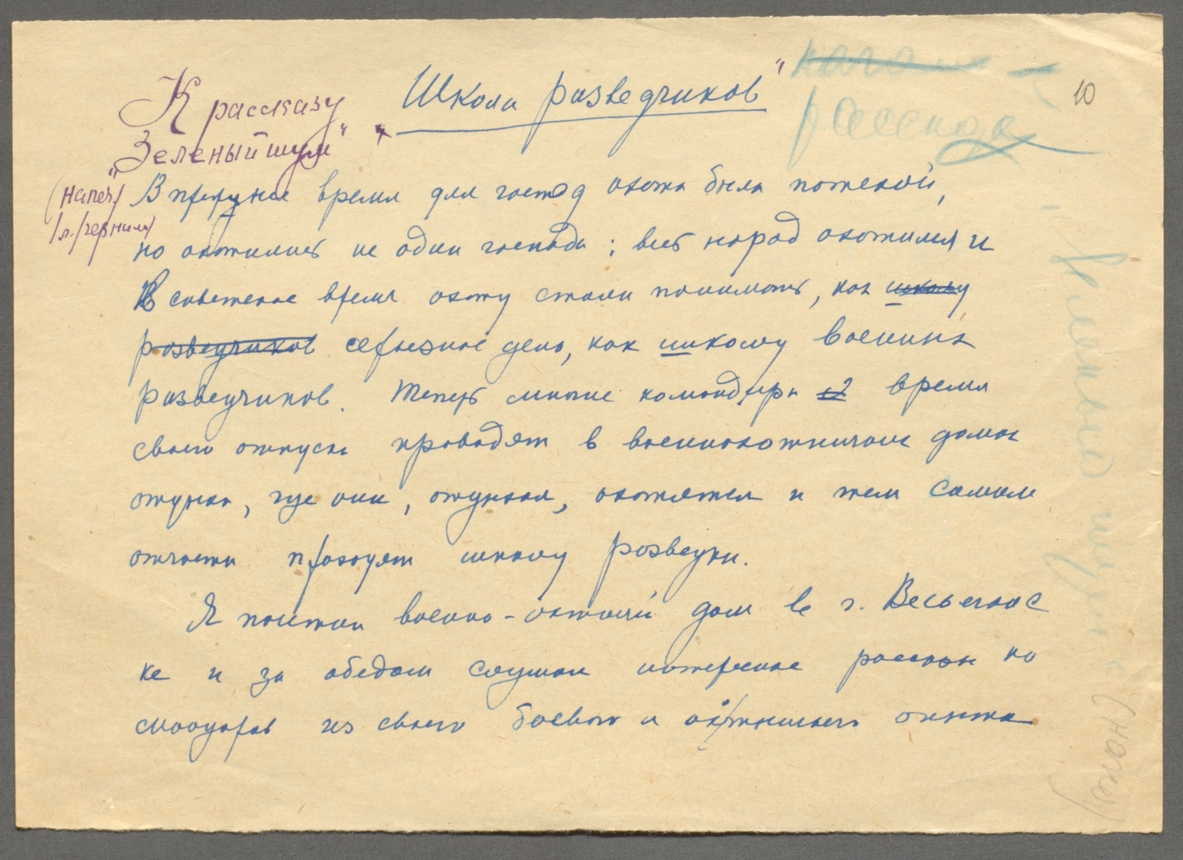 К рассказу
"Зеленый шум"
(напеч.
л./чернилы)
"Школа разведчиков"
начало
рассказа
10
В прежнее время для господ охота была потехой,
но охотились не одни господа: весь народ охотился и
в советское время охоту стали понимать, как школу
разведчиков серьезное дело, как школу военных
разведчиков. Теперь многие командиры время
своего отпуска проводят в военноохотничьих домах
отдыха, где они, отдыхая, охотятся и тем самым
отчасти проходят школу разведки.
Я посетил военно-охотничий дом в г. Весьегонс
ке и за обедом слушал интересные рассказы ко
мандиров из своего боевого и охотничьего опыта
"Зеленый шум"
(напеч)